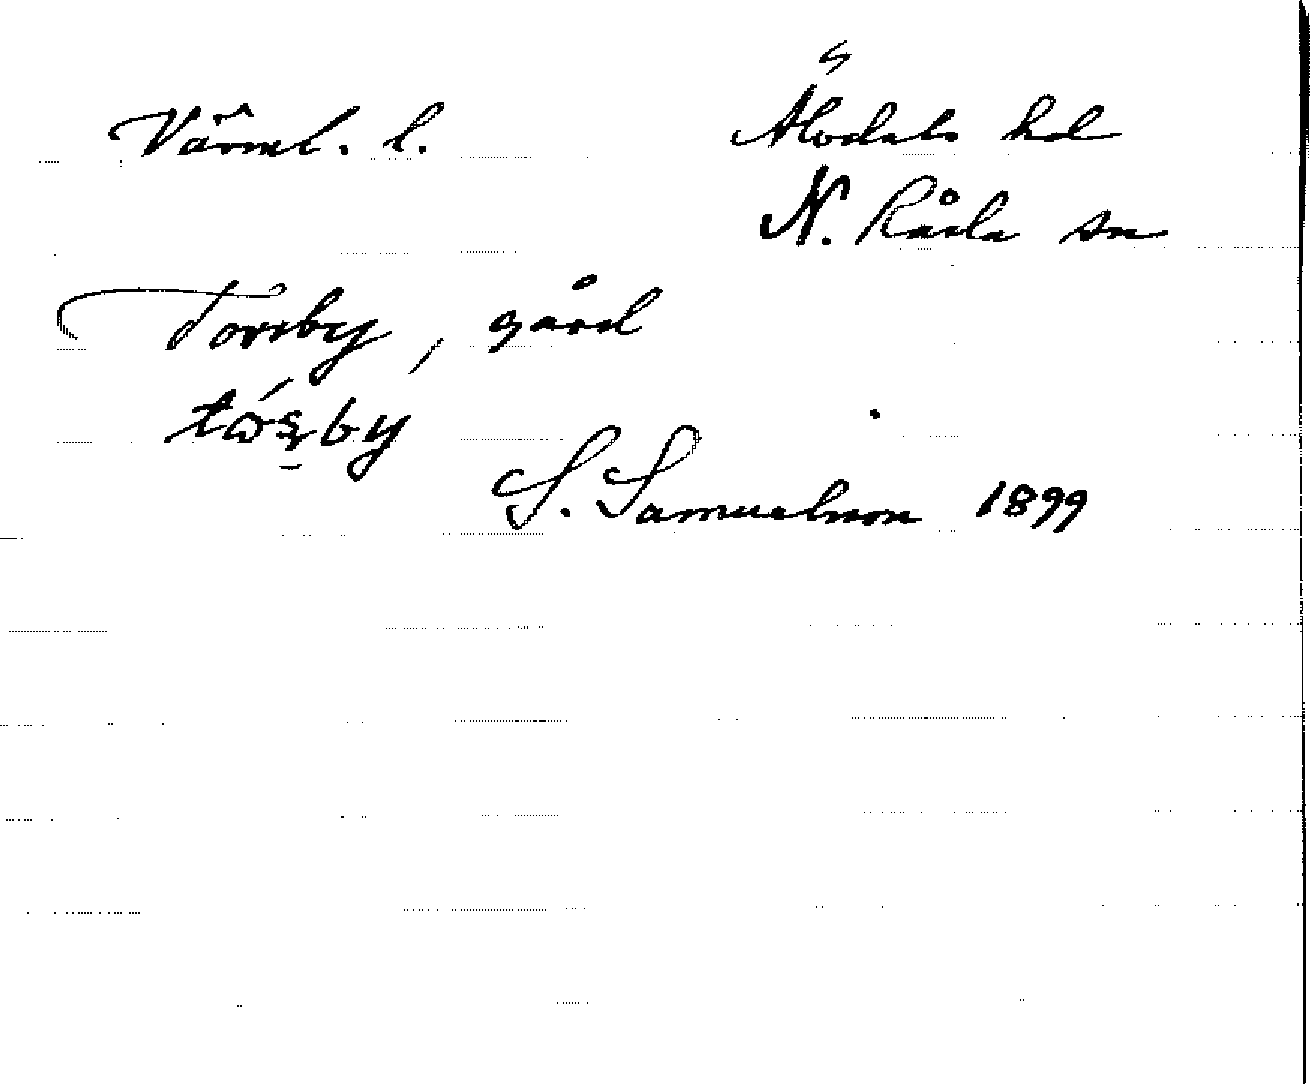 Värml. l. Älvdals hd
N. Råda sn
Torsby, gård
tɷ́ʂby
S. Samuelsson 1899